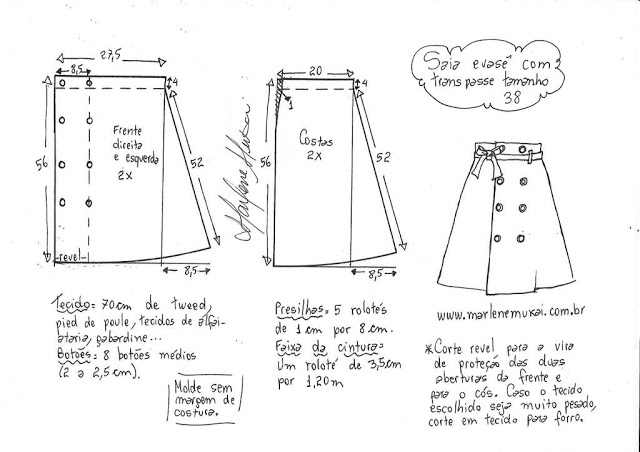 27,5
8,5
4
Frente
direita
e esquerda
2x
56
52
revel
8,5
Marlene Mukai
20
4
1
Costas
2x
56
52
8,5
Saia evasê com
transpasse tamanho
38
www.marlenemukai.com.br
Tecido= 70cm de tweed,
pied de poule, tecidos de alfai-
ataria, gabardine...
Botões= 8 botões médios
(2 a 2,5cm).
Molde sem
margem de
costura.
Presilhas= 5 rolotés
de 1cm por 8cm.
Faixa da cintura=
Um roloté de 3,5cm
por 1,20m
*Corte revel para a vira
de proteção das duas
aberturas da frente e
para o cós. Caso o tecido
escolhido seja muito pesado,
corte em tecido para forro.